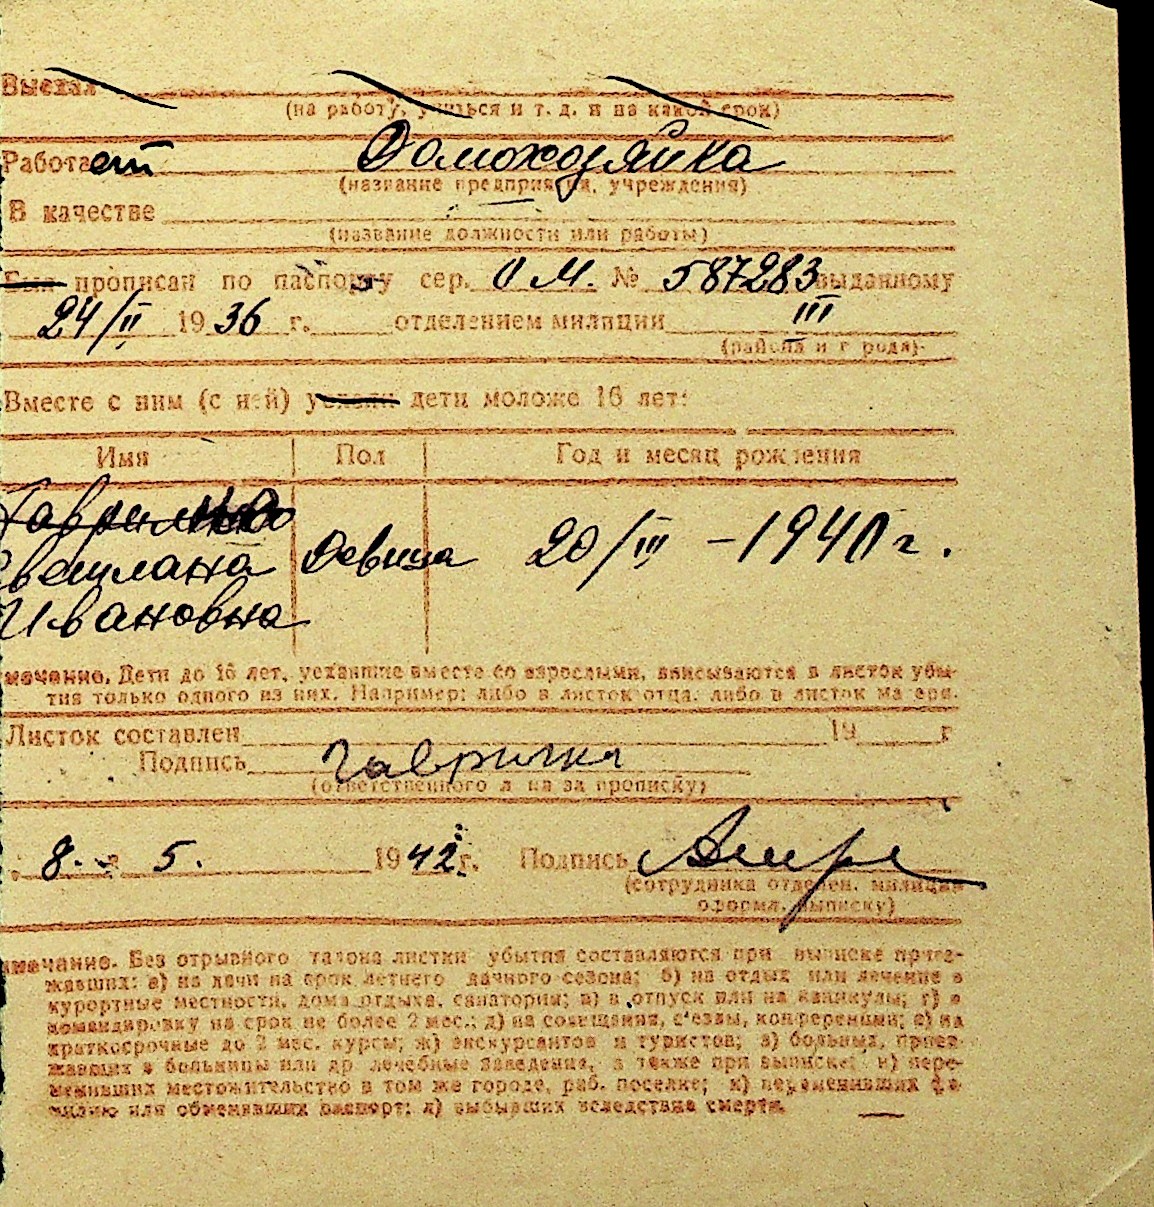 Выехал
(на работу, учиться и т. д. и на какой срок)
Работает Домохозяйка
(название предприятия, учреждения)
В качестве
(название должности или работы)
Был прописан по паспорту сер. О М. № 587283 выданному
24/II 1936 г. отделением милиции III
(района и города)
Вместе с ним (с ней) уехали дети моложе 16 лет:
Имя Пол Год и месяц рождения
Светлана Девица 20/III - 1940 г.
Ивановна
мечание. Дети до 16 лет, уехавшие вместе со взрослыми, вписываются в листок убы-
тия только одного из них. Например: либо в листок отца, либо в листок матери.
Листок составлен 19 г
Подпись Гаврилка
(ответственного лица за прописку)
8. 5. 1942 г. Подпись
(сотрудника отделен. милиции
оформл. выписку)
имечание. Без отрывного талона листки убытия составляются при выписке приез-
жавших: а) на дачи на срок летнего дачного сезона; б) на отдых или лечение в
курортные местности, дома отдыха, санатории; в) в отпуск или на каникулы; г) в
командировку на срок не более 2 мес.; д) на совещания, с'езды, конференции; е) на
краткосрочные до 2 мес. курсы; ж) экскурсантов и туристов; з) больных, приез-
жавших в больницы или др лечебные заведения, а также при выписке; и) пере-
менивших местожительство в том же городе, раб. поселке; к) переменивших фа-
милию или обменявших паспорт; л) выбывших вследствие смерти.